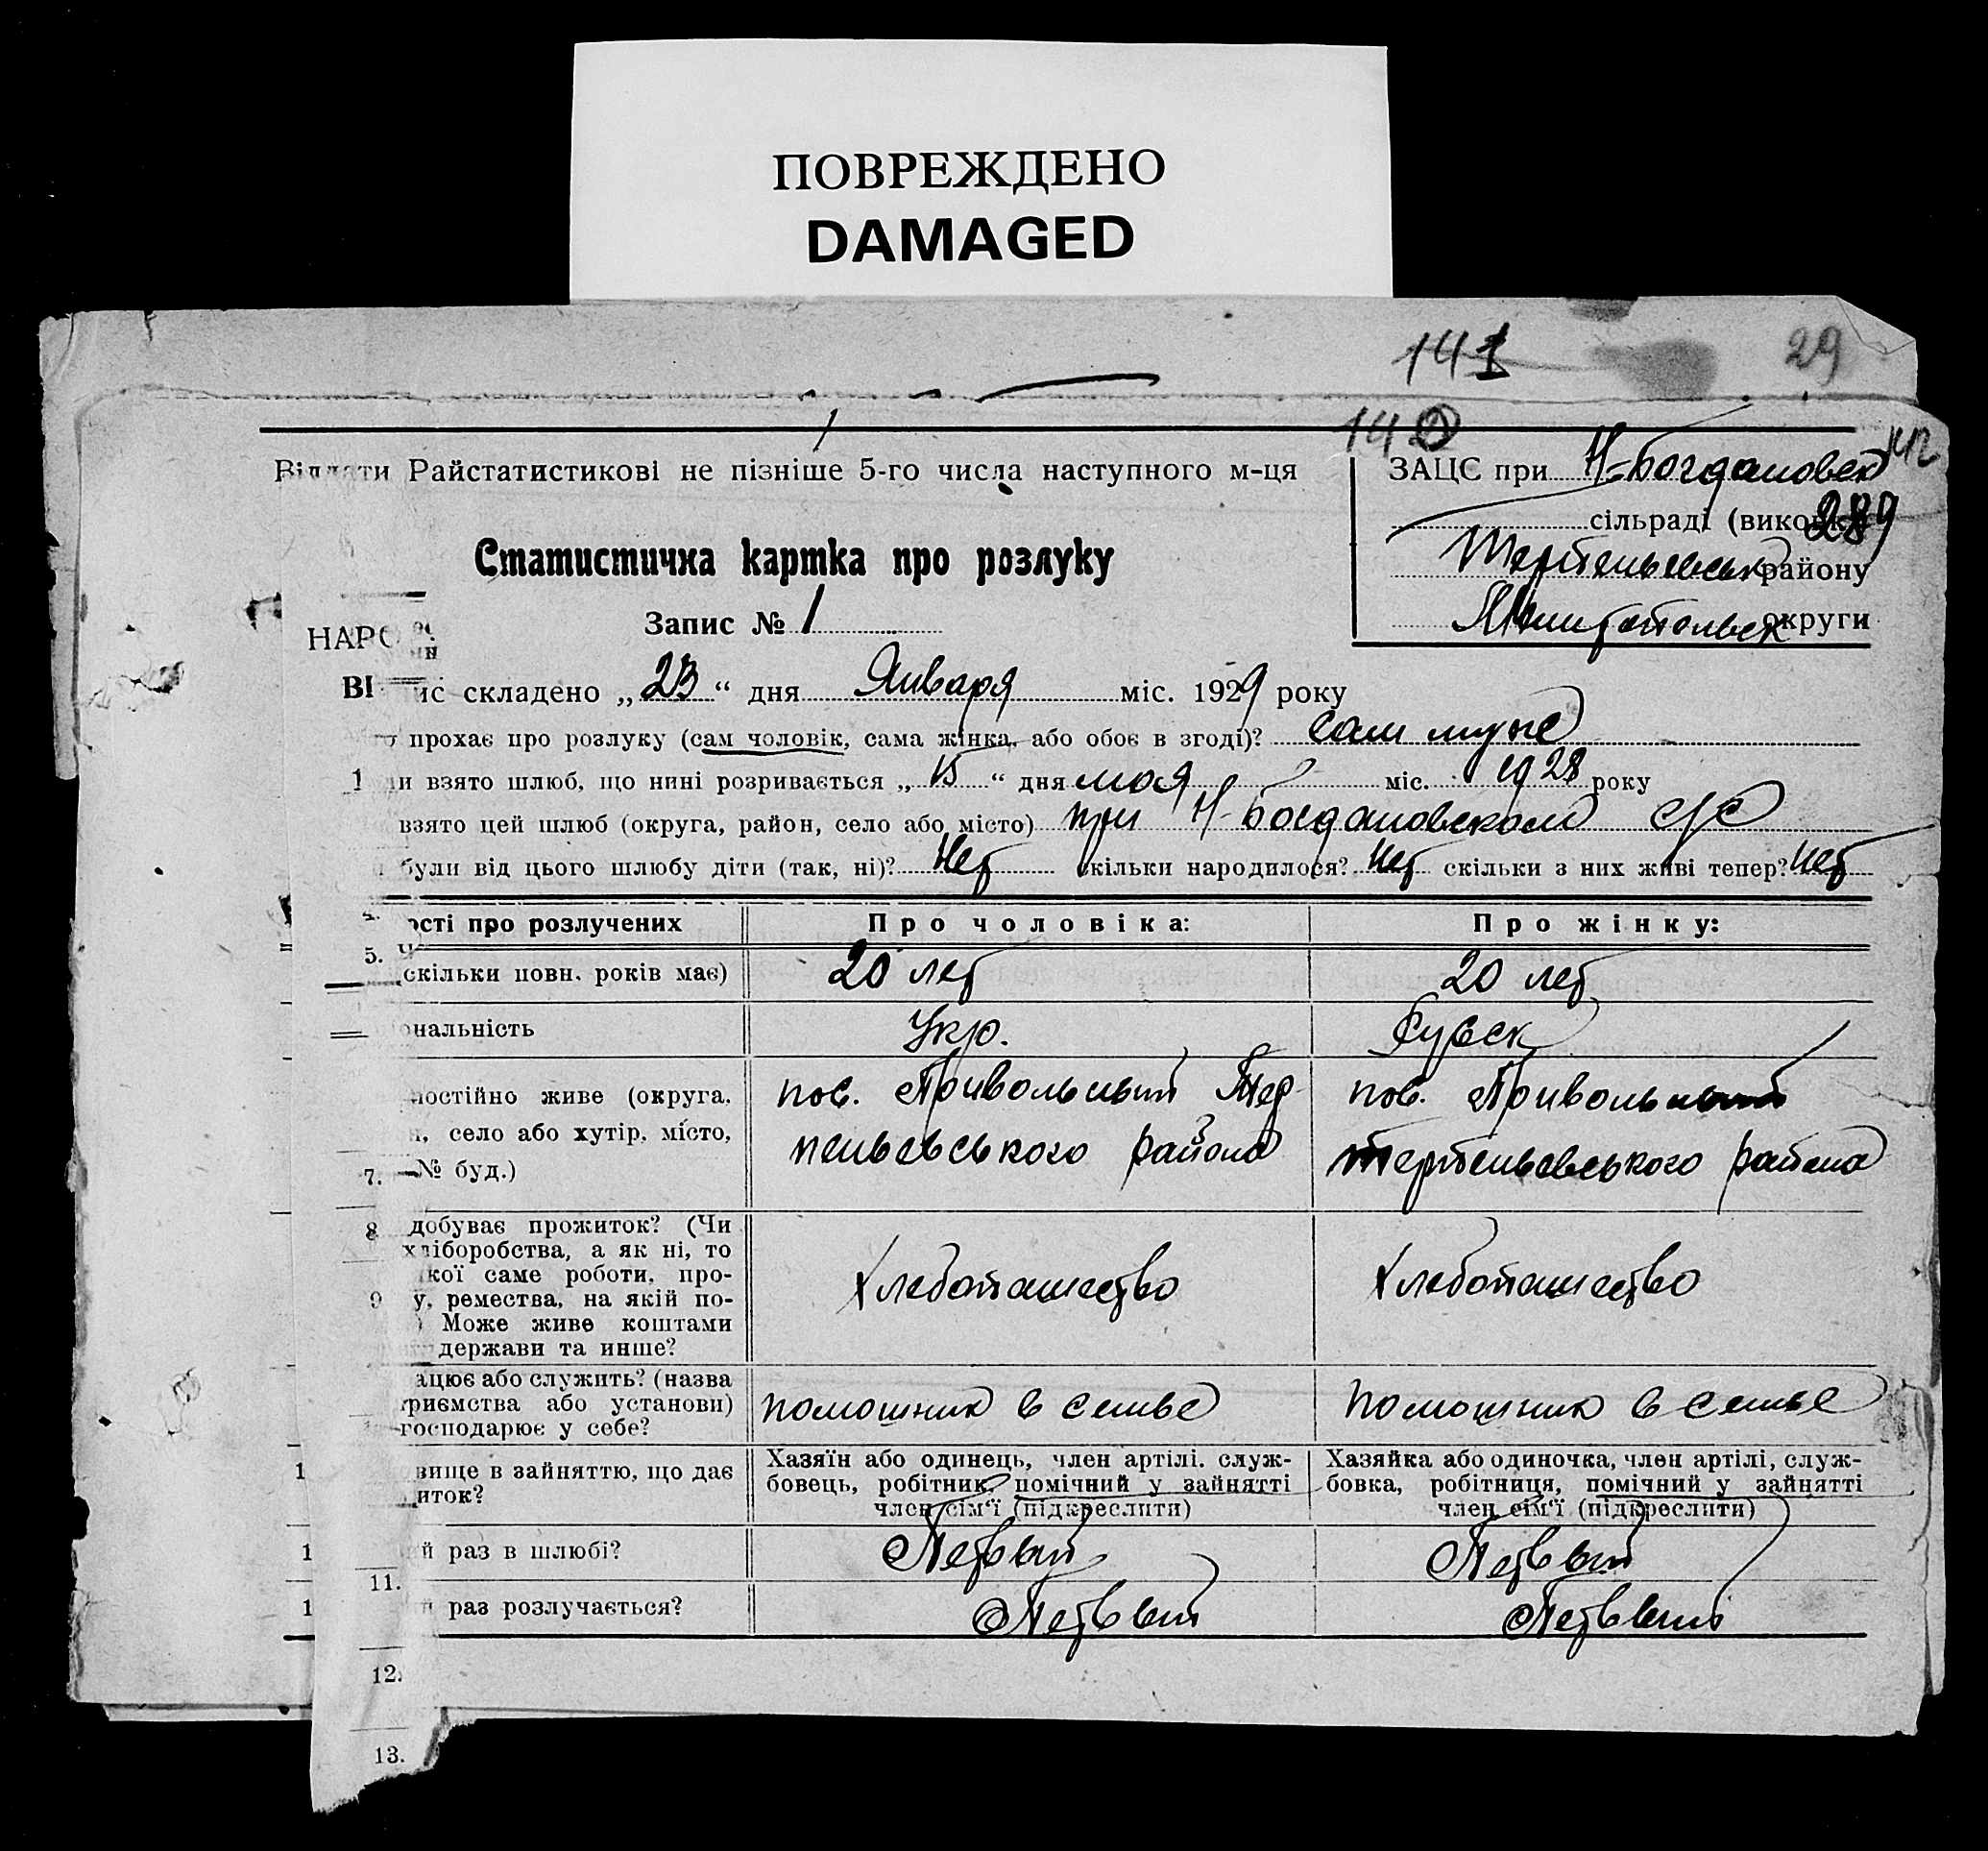 ПОВРЕЖДЕНО
DAMAGED
141
29
142
Віддати Райстатистикові не пізніше 5-го числа наступного м-ця
ЗАЦС при Н-Богдановск
289
сільраді (виконк
Статистична картка про розлуку
Терпеньевськ району
Запис № 1
Мелитопольск округи
НАРО
ВІ
ис складено „23“ дня Января міс. 1929 року
прохає про розлуку (сам чоловік, сама жінка, або обоє в згоді)? сам муже
1 ли взято шлюб, що нині розривається „15“ дня мая міс. 1928 року
взято цей шлюб (округа, район, село або місто) при Н-Богдановском с/с
були від цього шлюбу діти (так, ні)? Нет скільки народилося? Нет скільки з них живі тепер? Нет
4. ості про розлучених Про чоловіка: Про жінку:
5. скільки повн. років має) 20 лет 20 лет
ональність Укр. Русск
постійно живе (округа, пос. Привольный Тер пос. Привольный
н, село або хутір, місто, пеньевського района Терпеньевського района
7. № буд.)
8 добуває прожиток? (Чи
хліборобства, а як ні, то
якої саме роботи, про- Хлебопашество Хлебопашество
9 у, ремества, на якій по-
) Може живе коштами
держави та инше?
ацює або служить? (назва
приємства або установи) помошник в семье помошник в семье
господарює у себе?
1 овище в зайняттю, що дає Хазяїн або одинець, член артілі, служ- Хазяйка або одиночка, член артілі, служ-
иток? бовець, робітник, помічний у зайнятті бовка, робітниця, помічний у зайнятті
член сім'ї (підкреслити) член сім'ї (підкреслити)
1 ий раз в шлюбі? Первый Первый
11.
1 раз розлучається? Первый Первый
12.
13.